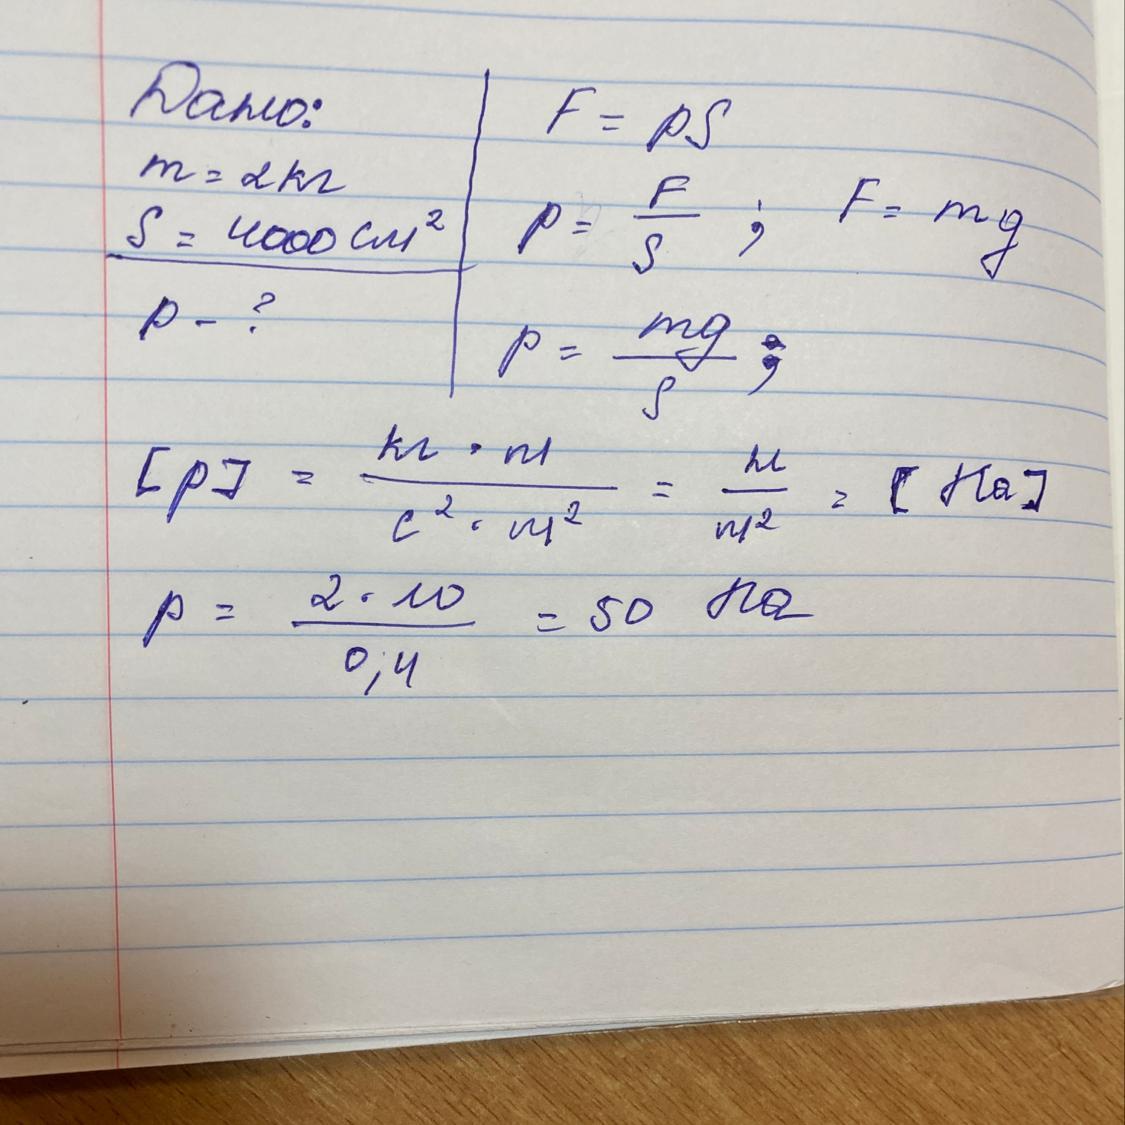 Дано:
m = 2кг
S = 4000 см²
p - ?
F = pS
p = F/S ; F = mg
p = mg/S ;
[p] = кг · м / с² · м² = Н/м² = [Па]
p = 2 · 10 / 0,4 = 50 Па